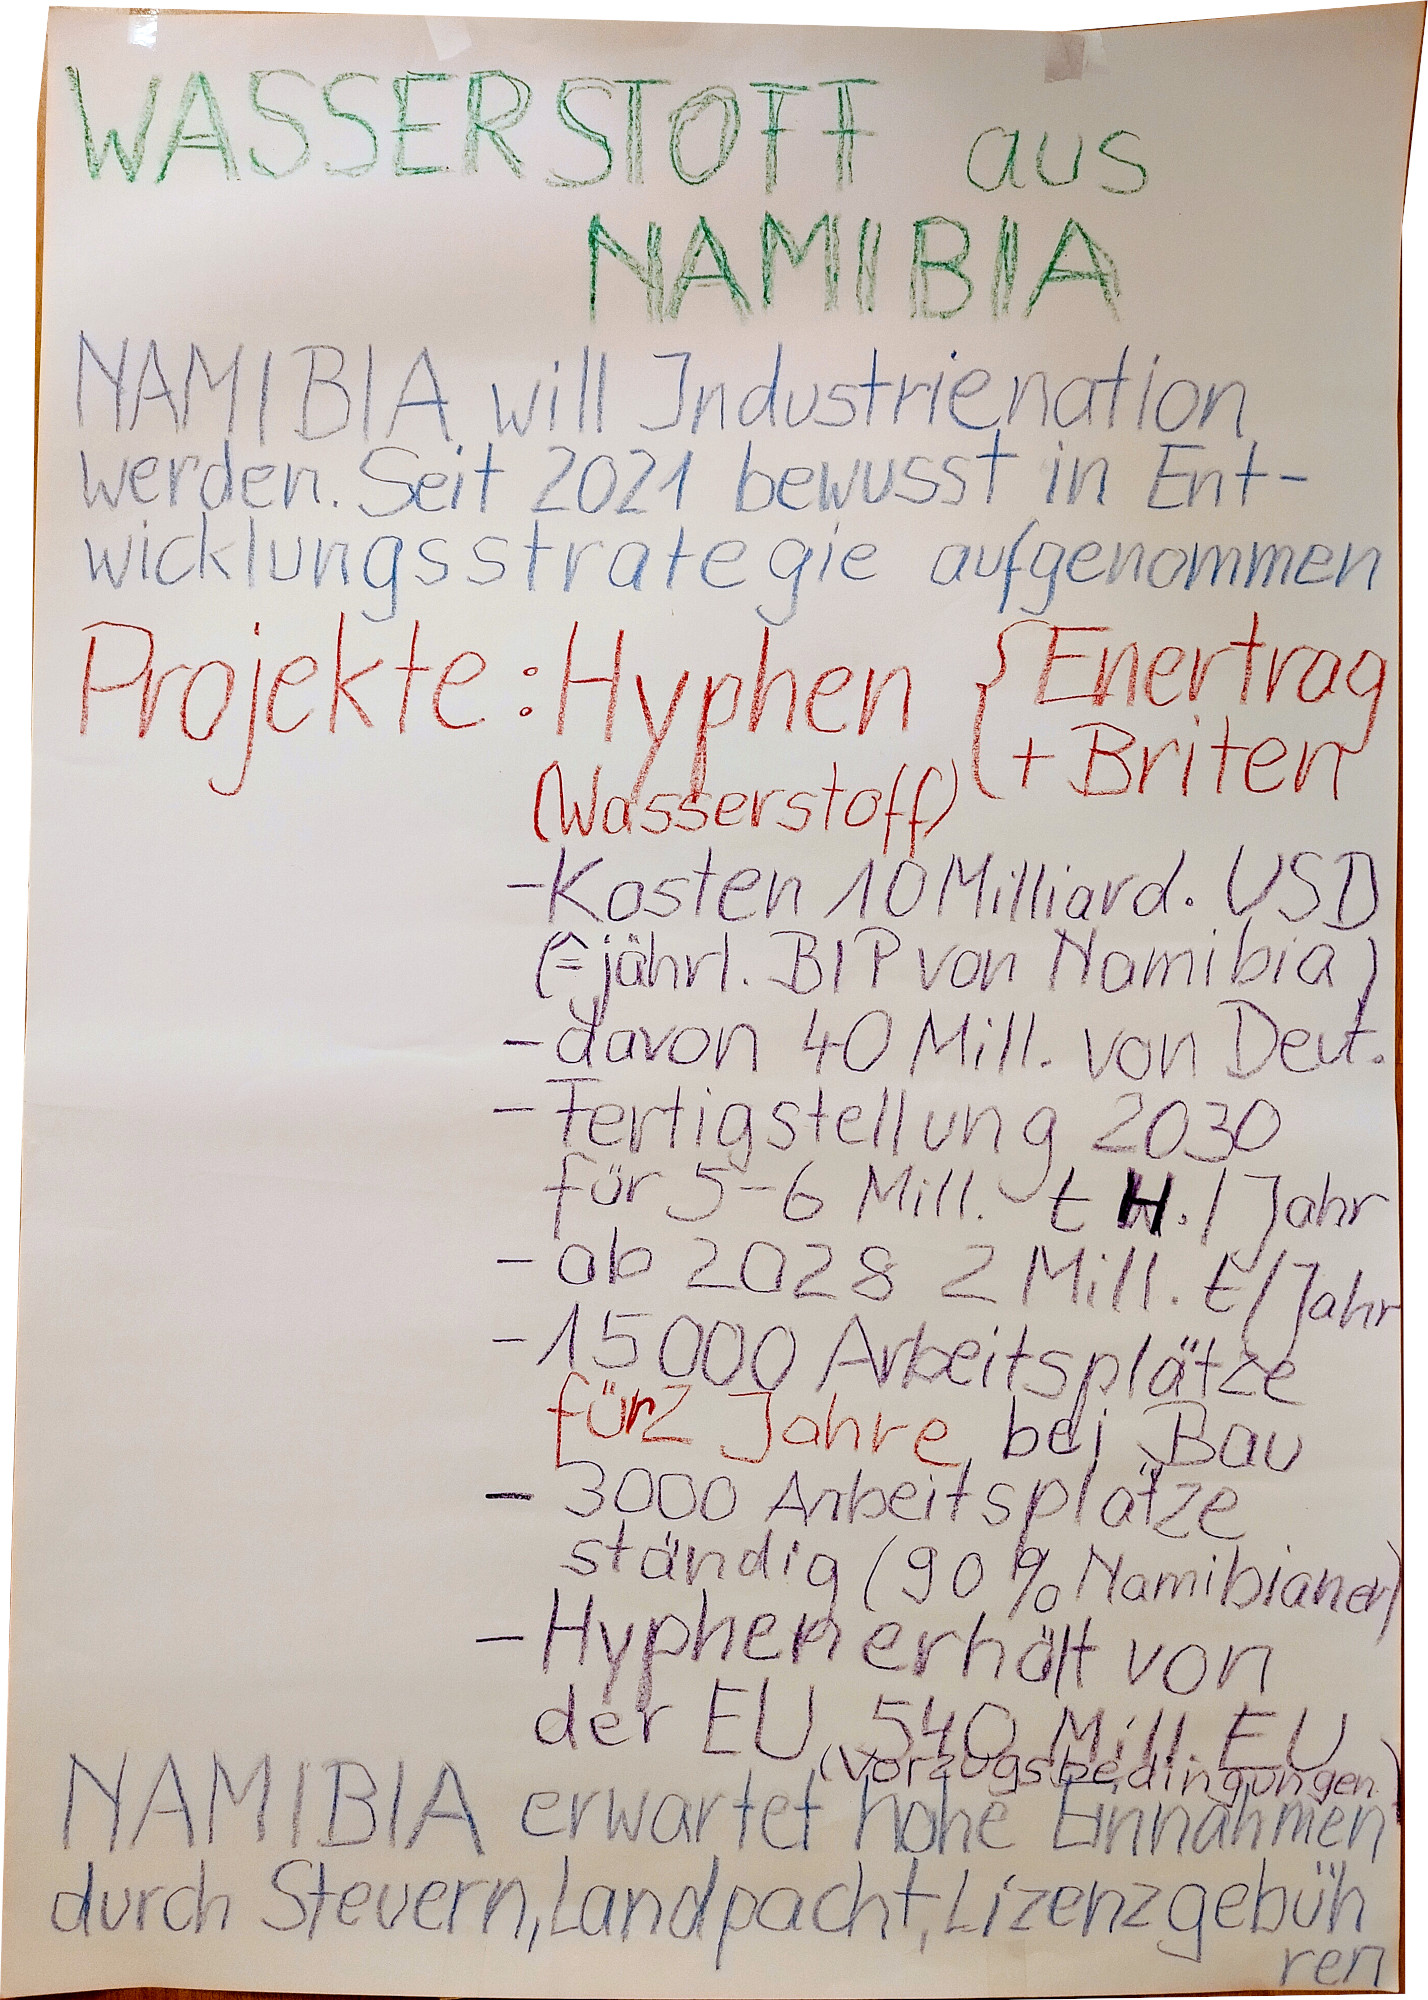 WASSERSTOFF aus
NAMIBIA
NAMIBIA will Industrienation
werden. Seit 2021 bewusst in Ent-
wicklungsstrategie aufgenommen
Projekte: Hyphen { Enertrag
+ Briten
(Wasserstoff)
- Kosten 10 Milliard. USD
(≙ jährl. BIP von Namibia)
- davon 40 Mill. von Deut.
- Fertigstellung 2030
für 5-6 Mill. t H./Jahr
- ab 2028 2 Mill. t/Jahr
- 15000 Arbeitsplätze
für 2 Jahre bei Bau
- 3000 Arbeitsplätze
ständig (90% Namibianer)
- Hyphen erhält von
der EU 540 Mill. EU
(Vorzugsbedingungen)
NAMIBIA erwartet hohe Einnahmen
durch Steuern, Landpacht, Lizenzgebüh
ren